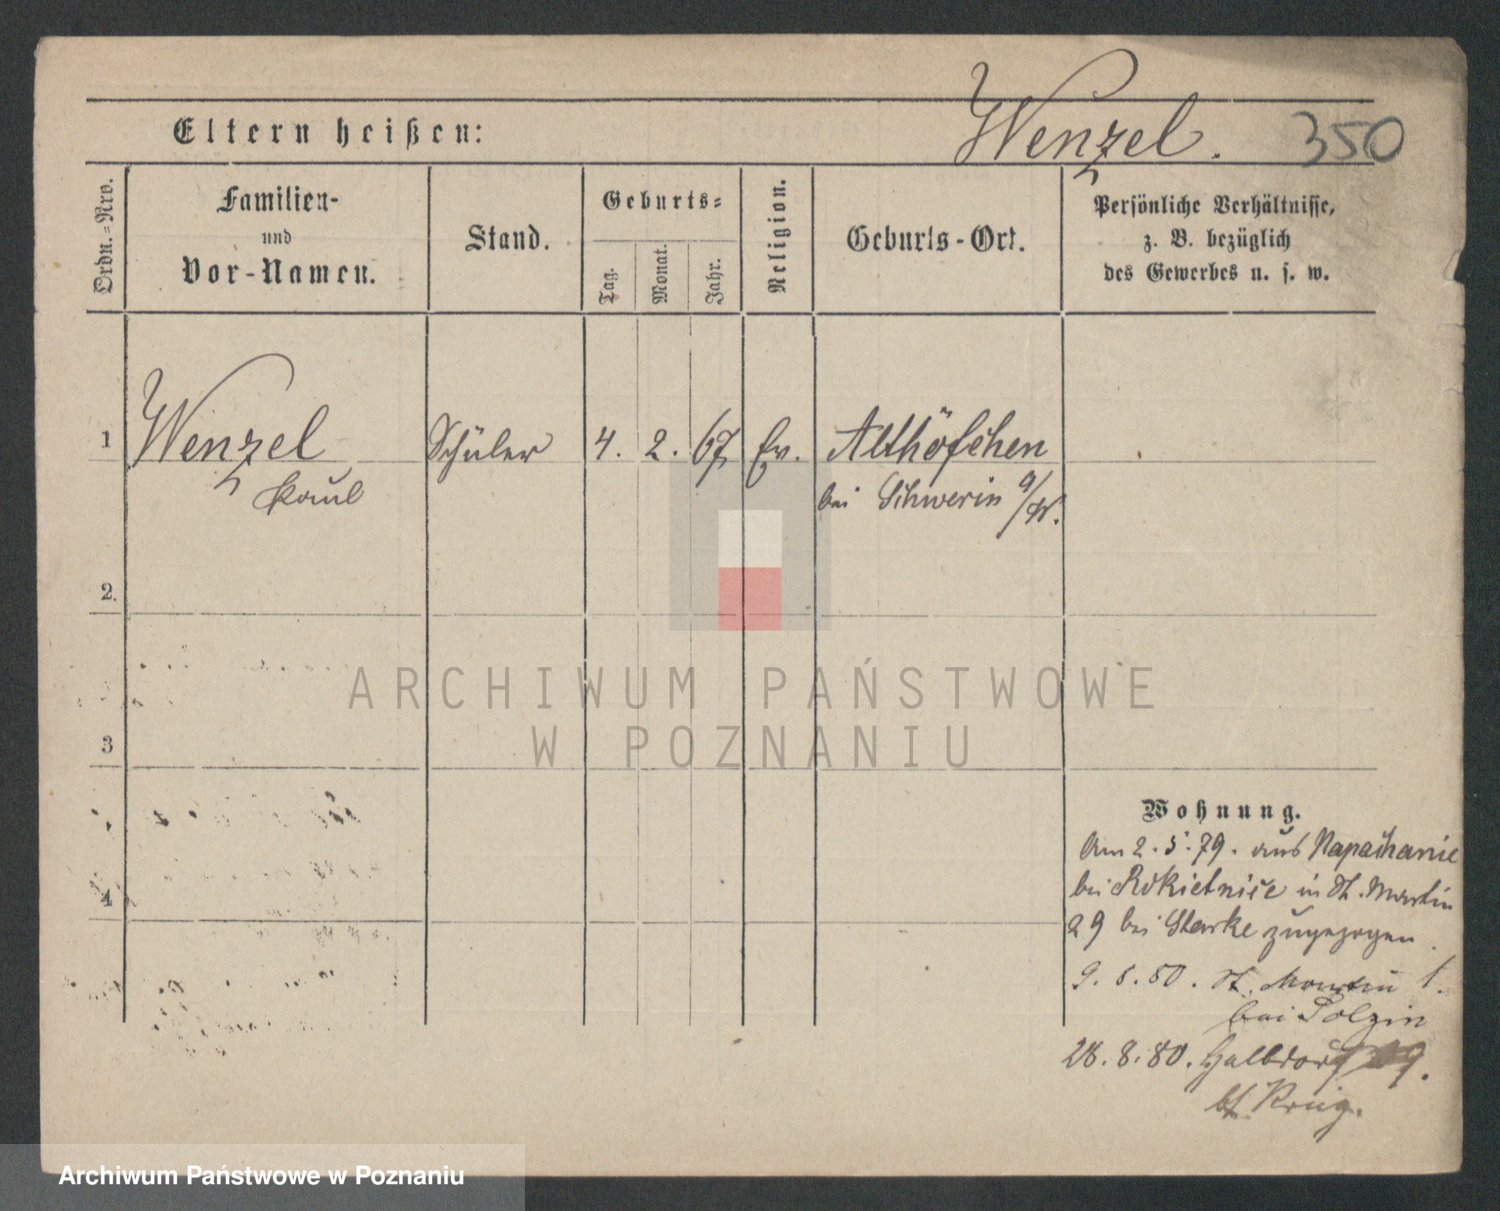 Wenzel. 350
Eltern heißen:
Ordn.-Nro.
Familien-
und
Vor-Namen.
Stand.
Geburts-
Tag.
Monat.
Jahr.
Religion.
Geburts-Ort.
Persönliche Verhältnisse,
z. B. bezüglich
des Gewerbes u. s. w.
1 Wenzel Schüler 4. 2. 67 Ev. Althöfchen
Paul bei Schwerin a/W.
2.
3
4
ARCHIWUM PAŃSTWOWE
W POZNANIU
Wohnung.
Am 2. 5. 79. aus Napachanie
bei Rokietnice in St. Martin
29 bei Starke zugezogen.
9. 8. 80. St. Martin 1.
bei Polzin
28. 8. 80. Halbdorf 29.
bei Krug.
Archiwum Państwowe w Poznaniu